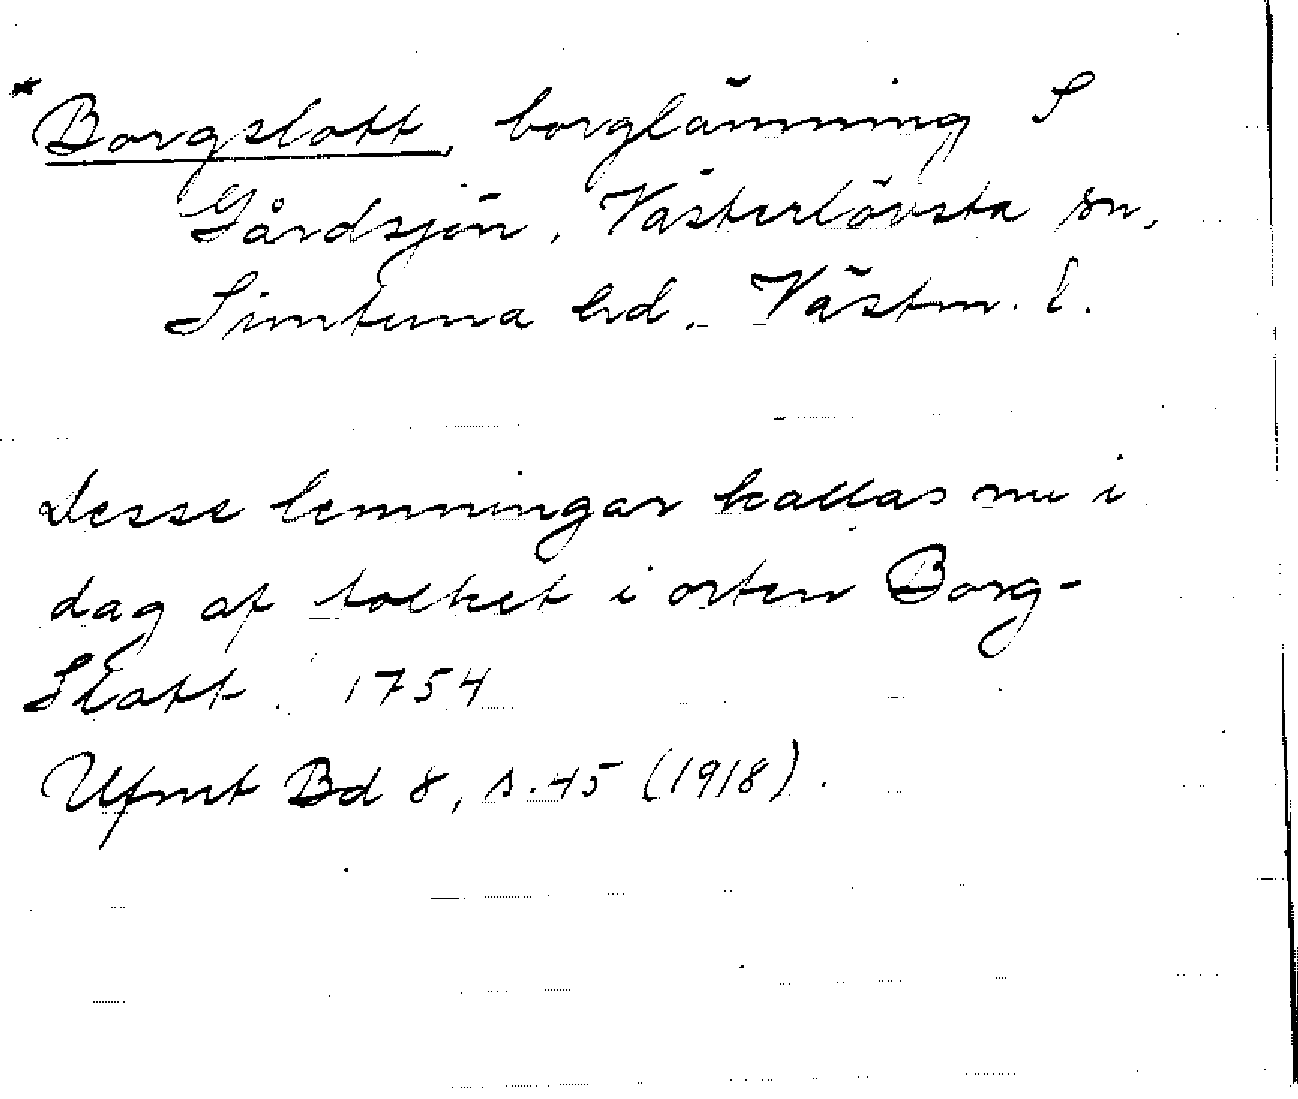 *Borgslott, borglämning S
Gårdsjön, Västerlövsta sn,
Simtuna hd, Västm. l.
Desse lemningar kallas nu i
dag af folket i orten Borg-
Slott. 1754
Ufmt Bd 8, s. 45 (1918).